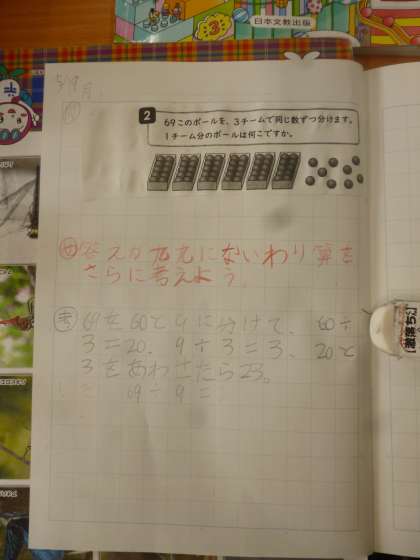 日本文教出版
3
5/9月
問
2
69このボールを、3チームで同じ数ずつ分けます。
1チーム分のボールは何こですか。
め 答えが九九にないわり算を
さらに考えよう。
考 69を60と9に分けて、60÷
3=20、9÷3=3、20と
3をあわせたら23。
69÷9=